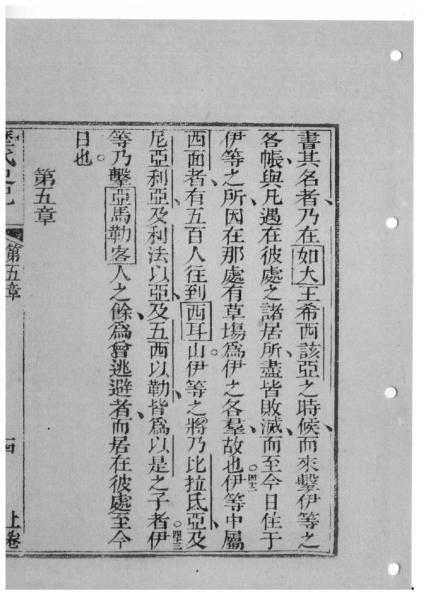 書其名者乃在如大王希西該亞之時候而來擊伊等之
各帳與凡遇在彼處之諸居所盡皆敗滅而至今日住于
伊等之所因在那處有草塲爲伊之各羣故也伊等中屬
西面者有五百人往到西耳山伊等之將乃比拉氐亞及
尼亞利亞及利法以亞及五西以勒皆爲以是之子者伊
等乃擊亞馬勒客人之餘爲曾逃避者而居在彼處至今
日也
第五章
第五章
上卷